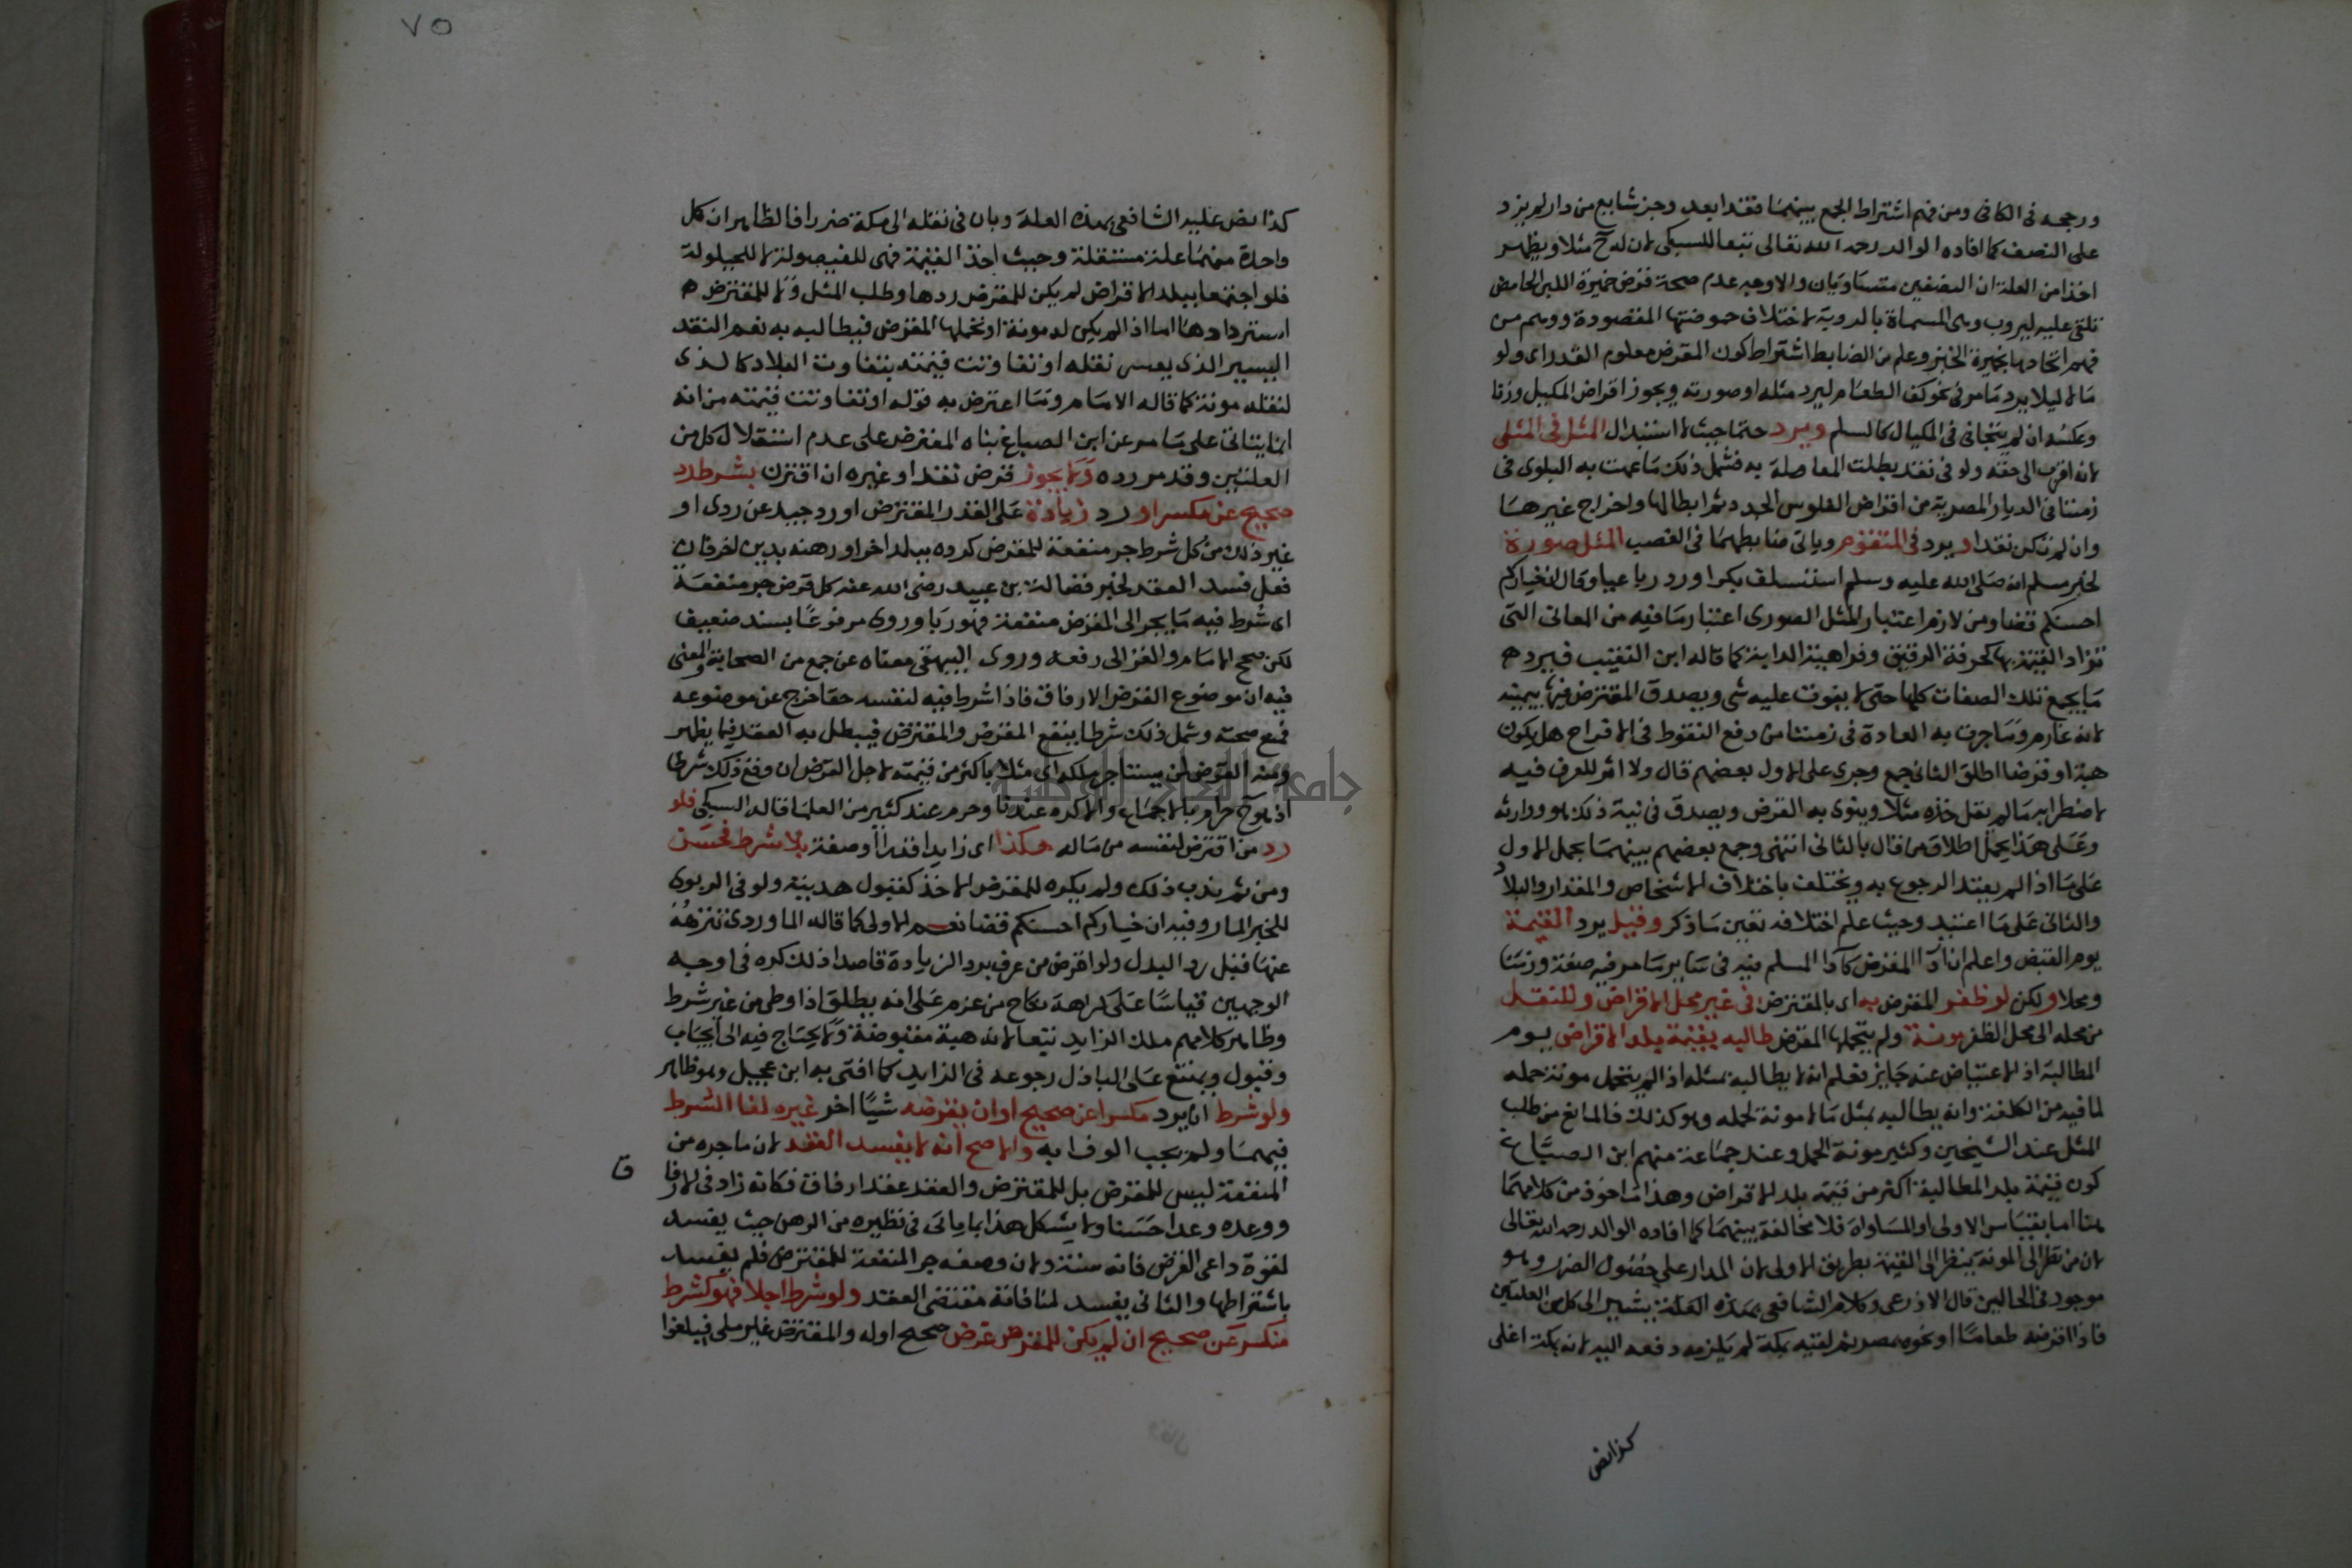 ورجحه فى الكافى ومن فهم اشتراط الجمع بينهما فقد ابعد وجز شايع من دار لم يزد
على النصف كما افاده الوالد رحمه الله تعالى تبعا للسبكى لان له ح مثلا ويظهر
اخذا من العلة ان النصفين متساويان والاوجه عدم صحة قرض خميرة اللبن الحامض
تلقى عليه ليروب وهى المسماة بالروبة لاختلاف حموضتها المقصودة ووهم من
فهم اتحادها بخميرة الخبز وعلم من الضابط اشتراط كون المقرض معلوم القدر اى ولو
مالا ليلا يرد ما مر فى نحو كف الطعام ليرد مثله او صورته ويجوز اقراض المكيل وزنا
وعكسه ان لم يتجافى فى المكيال كالسلم ويرد حتما حيث لا استبدال المثل فى المثلى
لانه اقرب الى حقه ولو فى نقد بطلت المعاملة به فشمل ذلك ما عمت به البلوى فى
زمننا فى الديار المصرية من اقراض الفلوس الجدد ثم ابطالها واخراج غيرها
وان لم تكن نقدا ويرد فى المتقوم وياتى ضابطهما فى الغصب المثل صورة
لخبر مسلم انه صلى الله عليه وسلم استسلف بكرا ورد رباعيا وقال ان خياركم
احسنكم قضا ومن لازم اعتبار المثل الصورى اعتبار ما فيه من المعانى التى
تزاد القيمة بها كحرفة الرقيق وفراهية الدابة كما قاله ابن النقيب فيرد
ما يجمع تلك الصفات كلها حتى لا يفوت عليه شى ويصدق المقترض فيها بيمينه
لانه غارم وما جرت به العادة فى زمننا من دفع النقوط فى الافراح هل يكون
هبة او قرضا اطلق الثانى جمع وجرى على الاول بعضهم قال ولا اثر للعرف فيه
لاضطرابه ما لم يقل خذه مثلا وينوى به القرض ويصدق فى نية ذلك هو ووارثه
وعلى هذا يحمل اطلاق من قال بالثانى انتهى وجمع بعضهم بينهما بحمل الاول
على ما اذا لم يعتد الرجوع به ويختلف باختلاف الاشخاص والمقدار والبلاد
والثانى على ما اعتيد وحيث علم اختلافه تعين ما ذكر وقيل يرد القيمة
يوم القبض واعلم ان ادا المقرض كادا المسلم فيه فى ساير ما مر فيه صفة وزمنا
ومحلا ولكن لو ظفر المقرض به اى بالمقترض فى غير محل الاقراض وللنقل
من محله الى محل الظفر مونة ولم يتحملها المقرض طالبه بقيمة بلد الاقراض يوم
المطالبة اذ الاعتياض عنه جايز فعلم انه لا يطالبه بمثله اذا لم يتحمل مونة حمله
لما فيه من الكلفة وانه يطالبه بمثل ما لا مونة لحمله وهو كذلك فالمانع من طلب
المثل عند الشيخين وكثير مونة الحمل وعند جماعة منهم ابن الصباغ
كون قيمة بلد المطالبة اكثر من قيمة بلد الاقراض وهذا ماخوذ من كلامهما
هنا اما بقياس الاولى او المساواة فلا مخالفة بينهما كما افاده الوالد رحمه الله تعالى
لان من نظر الى المونة ينظر الى القيمة بطريق الاولى لان المدار على حصول الضرر وهو
موجود فى الحالين قال الاذرعى وكلام الشافعى بهذه العلة يشير الى كل من العلتين
فاذا اقرضه طعاما او نحوه بمصر ثم لقيه بمكة لم يلزمه دفعه اليه لانه بمكة اغلى
كذا نص
٧٥
كذا نص عليه الشافعى بهذه العلة وبان فى نقله الى مكة ضررا فالظاهر ان كل
واحدة منهما علة مستقلة وحيث اخذ القيمة فهى للفيصولة لا للحيلولة
فلو اجتمعا ببلد الاقراض لم يكن للمقرض ردها وطلب المثل ولا للمقترض
استردادها اما اذا لم يكن له مونة او تحملها المقرض فيطالبه به نعم النقد
اليسير الذى يعسر نقله او تفاوتت قيمته بتفاوت البلاد كالذى
لنقله مونة كما قاله الامام وما اعترض به قوله او تفاوتت قيمته من انه
انما يتاتى على ما مر عن ابن الصباغ بناه المعترض على عدم استقلال كل من
العلتين وقد مر رده ولا يجوز قرض نقد او غيره ان اقترن بشرط رد
صحيح عن مكسر او رد زيادة على القدر المقترض او رد جيد عن ردى او
غير ذلك من كل شرط جر منفعة للمقرض كرده ببلد اخر او رهنه بدين اخر فان
فعل فسد العقد لخبر فضالة بن عبيد رضى الله عنه كل قرض جر منفعة
اى شرط فيه ما يجر الى المقرض منفعة فهو ربا وروى مرفوعا بسند ضعيف
لكن صحح الامام والغزالى رفعه وروى البيهقى معناه عن جمع من الصحابة والمعنى
فيه ان موضوع القرض الارفاق فاذا شرط فيه لنفسه حقا خرج عن موضوعه
فمنع صحته وشمل ذلك شرطا ينفع المقرض والمقترض فيبطل به العقد فيما يظهر
ومنه القرض لمن يستاجر ملكه اى مثلا باكثر من قيمته لاجل القرض ان وقع ذلك شرطا
اذ هو ح حرام بالاجماع والا كره عندنا وحرم عند كثير من العلما قاله السبكى فلو
رد من اقترض لنفسه من ماله هكذا اى زايدا قدرا او صفة بلا شرط فحسن
ومن ثم ندب ذلك ولم يكره للمقرض الاخذ كقبول هديته ولو فى الربوى
للخبر المار وفيه ان خياركم احسنكم قضا نعم الاولى كما قاله الماوردى تنزهه
عنها قبل رد البدل ولو اقرض من عرف برد الزيادة قاصدا ذلك كره فى اوجه
الوجهين قياسا على كراهة نكاح من عزم على انه يطلق اذا وطى من غير شرط
وظاهر كلامهم ملك الزايد تبعا لانه هبة مقبوضة ولا يحتاج فيه الى ايجاب
وقبول ويمتنع على الباذل رجوعه فى الزايد كما افتى به ابن عجيل وهو ظاهر
ولو شرط ان يرد مكسرا عن صحيح او ان يقرضه شيا اخر غيره لغا الشرط
فيهما ولم يجب الوفا به والاصح انه لا يفسد العقد لان ما جره من
المنفعة ليس للمقرض بل للمقترض والعقد عقد ارفاق فكانه زاد فى الارفا
ق
ووعده وعدا حسنا ولا يشكل هذا بما ياتى فى نظيره من الرهن حيث يفسد
لقوة داعى القرض فانه سنة ولان وصفه جر المنفعة للمقترض فلم يفسد
باشتراطها والثانى يفسد لمنافاته مقتضى العقد ولو شرط اجلا فهو كشرط
منكسر عن صحيح ان لم يكن للمقرض غرض صحيح اوله والمقترض غير ملى فيلغوا